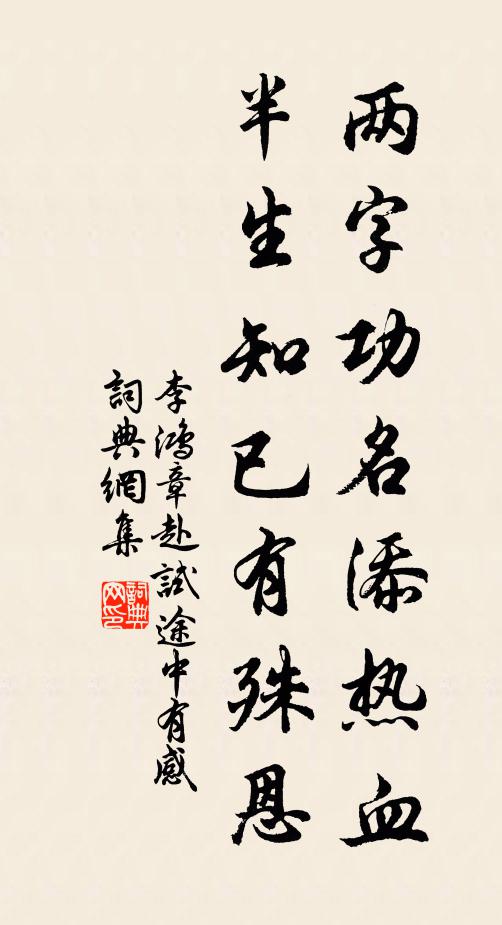 两字功名添热血
半生知已有殊恩
李鴻章赴試途中有感
詞典網集
詞典
网印